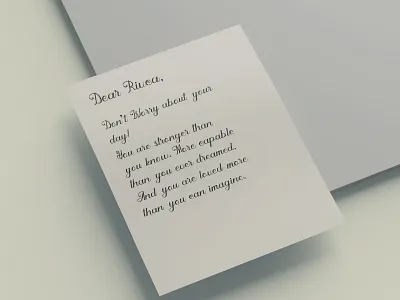 Dear Rivea,
Don't Worry about your
day!
You are stronger than
you know. More capable
than you ever dreamed.
And you are loved more
than you can imagine.